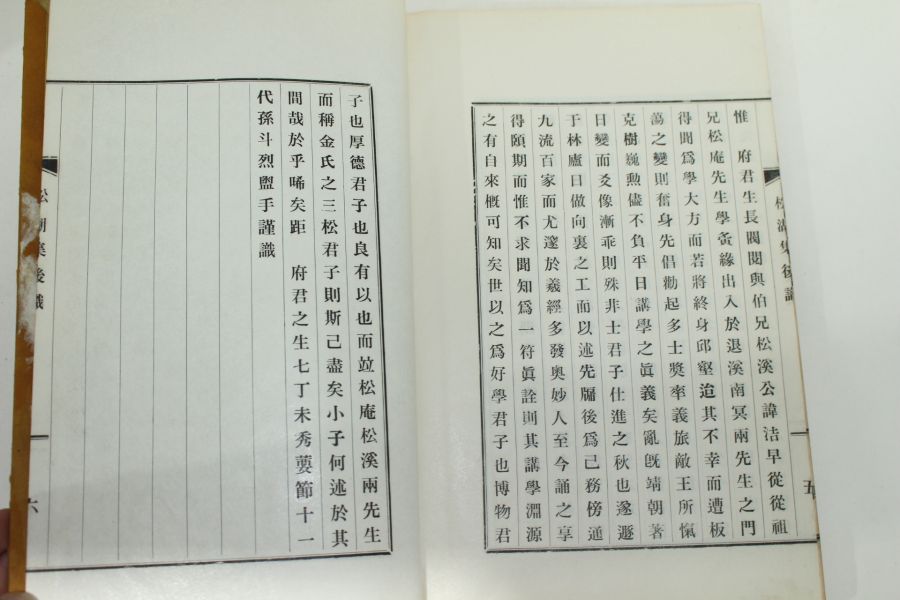 惟 府君生長閥閱與伯兄松溪公諱洁早從從祖
兄松庵先生學夤緣出入於退溪南冥兩先生之門
得聞爲學大方而若將終身邱壑迨其不幸而遭板
蕩之變則奮身先倡勸起多士奬率義旅敵王所愾
克樹巍勲儘不負平日講學之眞義矣亂旣靖朝著
日變而爻像漸乖則殊非士君子仕進之秋也遂遯
于林廬日做向裏之工而以述先牖後爲己務傍通
九流百家而尤邃於羲經多發奧妙人至今誦之享
得頤期而惟不求聞知爲一符眞詮則其講學淵源
之有自來槪可知矣世以之爲好學君子也博物君
五
子也厚德君子也良有以也而竝松庵松溪兩先生
而稱金氏之三松君子則斯已盡矣小子何述於其
間哉於乎唏矣距 府君之生七丁未秀葽節十一
代孫斗烈盥手謹識
後識
六